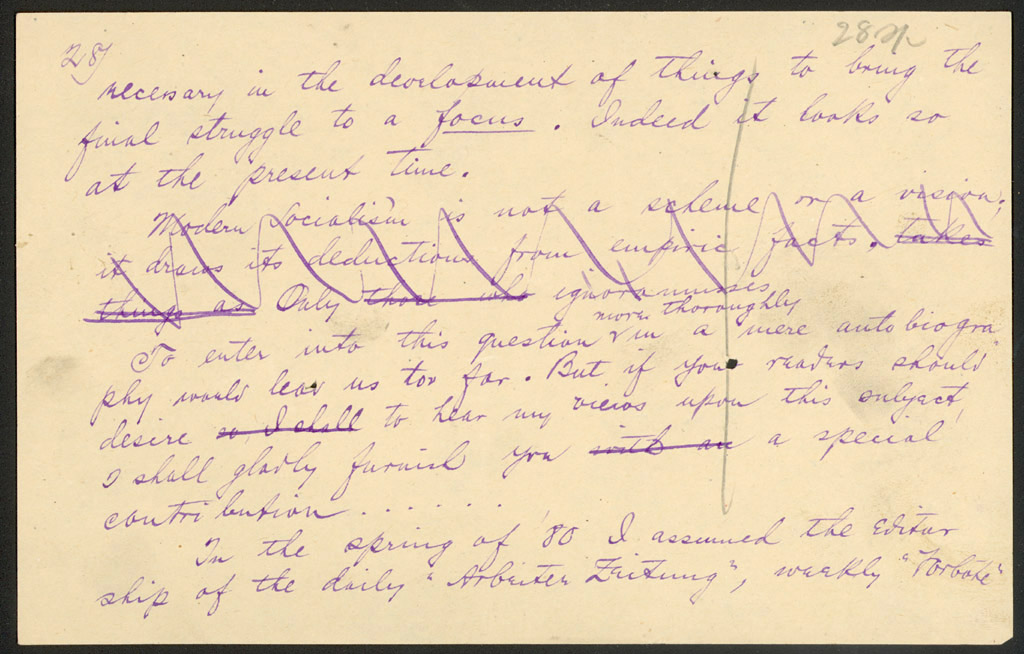 28)
necessary in the development of things to bring the
final struggle to a focus. Indeed it looks so
at the present time.
Modern Socialism is not a scheme or a vision;
it draws its deductions from empiric facts. takes
things as Only those who ignoramusses
more thoroughly
To enter into this question in a mere autobiogra
phy would lead us too far. But if your readers should
desire so, I shall to hear my views upon this subject,
I shall gladly furnish you with an a special
contribution . . . . . .
In the spring of '80 I assumed the editor
ship of the daily "Arbeiter Zeitung", weekly "Vorbote"